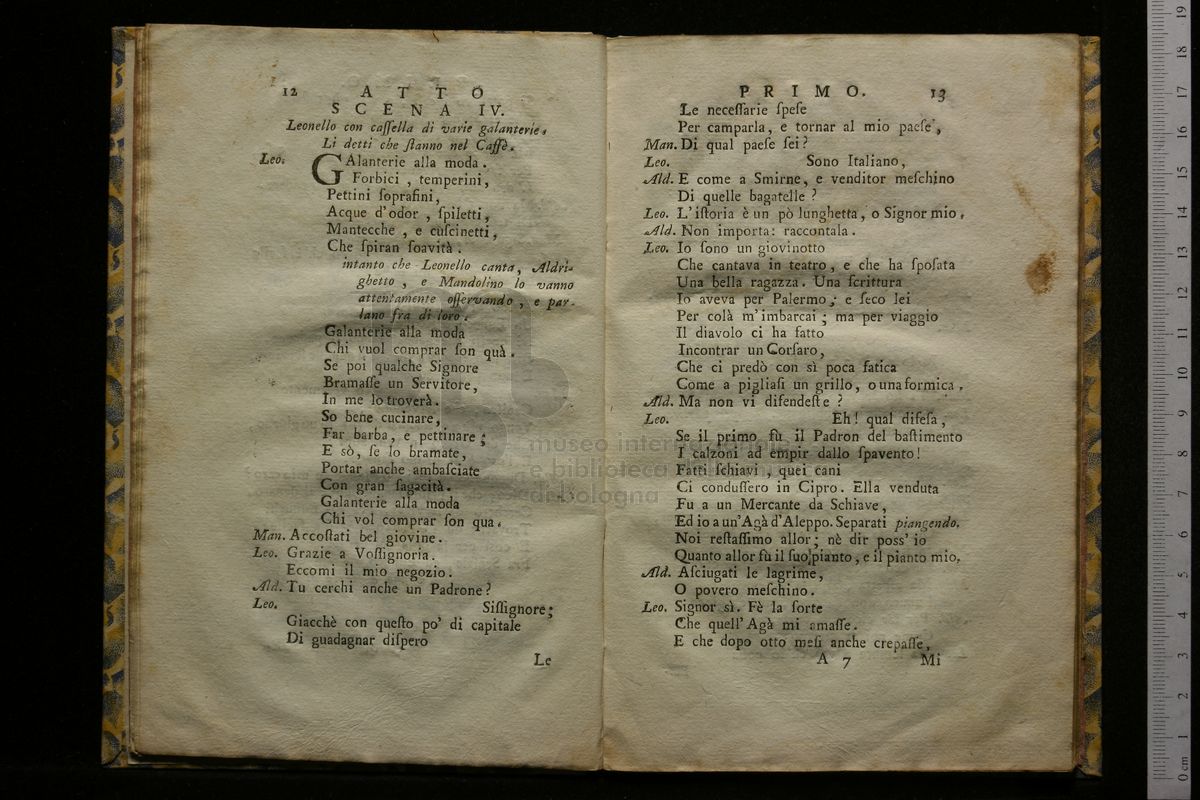 12 ATTO
SCENA IV.
Leonello con caſſella di varie galanterie.
Li detti che ſtanno nel Caffè.
Leo. GAlanterie alla moda.
Forbici, temperini,
Pettini ſoprafini,
Acque d'odor, ſpiletti,
Mantecche, e cuſcinetti,
Che ſpiran ſoavità.
intanto che Leonello canta, Aldri-
ghetto, e Mandolino lo vanno
attentamente oſſervando, e par-
lano fra di loro.
Galanterie alla moda
Chi vuol comprar ſon quà.
Se poi qualche Signore
Bramaſſe un Servitore,
In me lo troverà.
So bene cucinare,
Far barba, e pettinare;
E sò, ſe lo bramate,
Portar anche ambaſciate
Con gran ſagacità.
Galanterie alla moda
Chi vol comprar ſon qua.
Man. Accoſtati bel giovine.
Leo. Grazie a Voſſignoria.
Eccomi il mio negozio.
Ald. Tu cerchi anche un Padrone?
Leo. Siſſignore;
Giacchè con queſto po' di capitale
Di guadagnar diſpero
Le
PRIMO. 13
Le neceſſarie ſpeſe
Per camparla, e tornar al mio paeſe,
Man. Di qual paeſe ſei?
Leo. Sono Italiano,
Ald. E come a Smirne, e venditor meſchino
Di quelle bagatelle?
Leo. L'iſtoria è un pò lunghetta, o Signor mio,
Ald. Non importa: raccontala.
Leo. Io ſono un giovinotto
Che cantava in teatro, e che ha ſpoſata
Una bella ragazza. Una ſcrittura
Io aveva per Palermo; e ſeco lei
Per colà m'imbarcai; ma per viaggio
Il diavolo ci ha fatto
Incontrar un Corſaro,
Che ci predò con sì poca fatica
Come a pigliaſi un grillo, o una formica.
Ald. Ma non vi difendeſte?
Leo. Eh! qual difeſa,
Se il primo fù il Padron del baſtimento
I calzoni ad empir dallo ſpavento!
Fatti ſchiavi, quei cani
Ci conduſſero in Cipro. Ella venduta
Fu a un Mercante da Schiave,
Ed io a un'Agà d'Aleppo. Separati piangendo.
Noi reſtaſſimo allor; nè dir poss' io
Quanto allor fù il ſuo pianto, e il pianto mio.
Ald. Aſciugati le lagrime,
O povero meſchino.
Leo. Signor sì. Fè la ſorte
Che quell'Agà mi amaſſe.
E che dopo otto meſi anche crepaſſe,
A 7 Mi
museo internazionale
e biblioteca della musica
di bologna